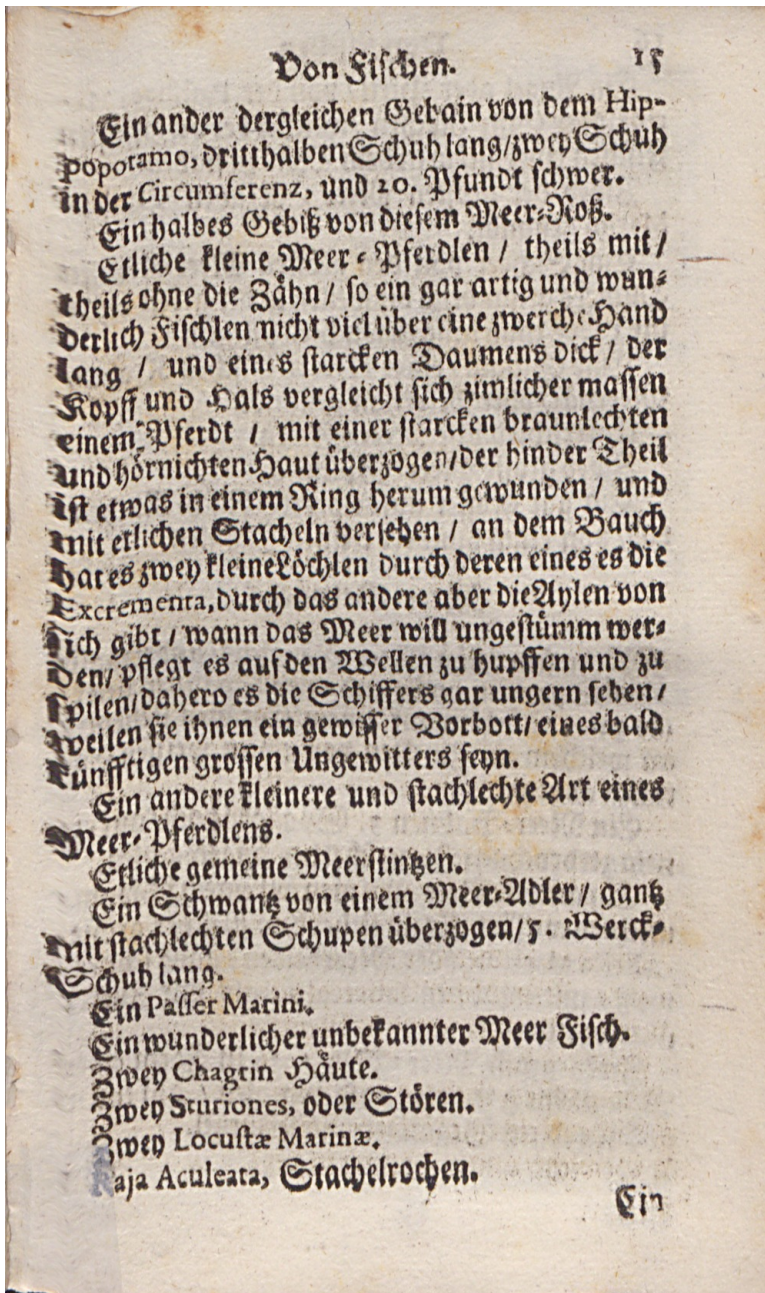 Von Fischen. 15
Ein ander dergleichen Gebain von dem Hip-
popotamo, dritthalben Schuh lang/ zwey Schuh
in der Circumferenz, und 20. Pfundt schwer.
Ein halbes Gebiß von diesem Meer-Roß.
Etliche kleine Meer-Pferdlen / theils mit /
theils ohne die Zähn / so ein gar artig und wun-
derlich Fischlen nicht viel über eine zwerche Hand
lang / und eines starcken Daumens dick / der
Kopff und Hals vergleicht sich zimlicher massen
einem Pferdt / mit einer starcken braunlechten
und hörnichten Haut überzogen / der hinder Theil
ist etwas in einem Ring herum gewunden / und
mit etlichen Stacheln versehen / an dem Bauch
hat es zwey kleine Löchlen durch deren eines es die
Excrementa, durch das andere aber die Aylen von
sich gibt / wann das Meer will ungestümm wer-
den / pflegt es auf den Wellen zu hupffen und zu
spilen / dahero es die Schiffers gar ungern sehen /
weilen sie ihnen ein gewisser Vorbott / eines bald
künfftigen grossen Ungewitters seyn.
Ein andere kleinere und stachlechte Art eines
Meer-Pferdlens.
Etliche gemeine Meerstintzen.
Ein Schwantz von einem Meer-Adler / gantz
mit stachlechten Schupen überzogen / 5. Werck-
Schuh lang.
Ein Passer Marini.
Ein wunderlicher unbekannter Meer Fisch.
Zwey Chagrin Häute.
Zwey Sturiones, oder Stören.
Zwey Locustæ Marinæ.
Raja Aculeata, Stachelrochen.
Ein